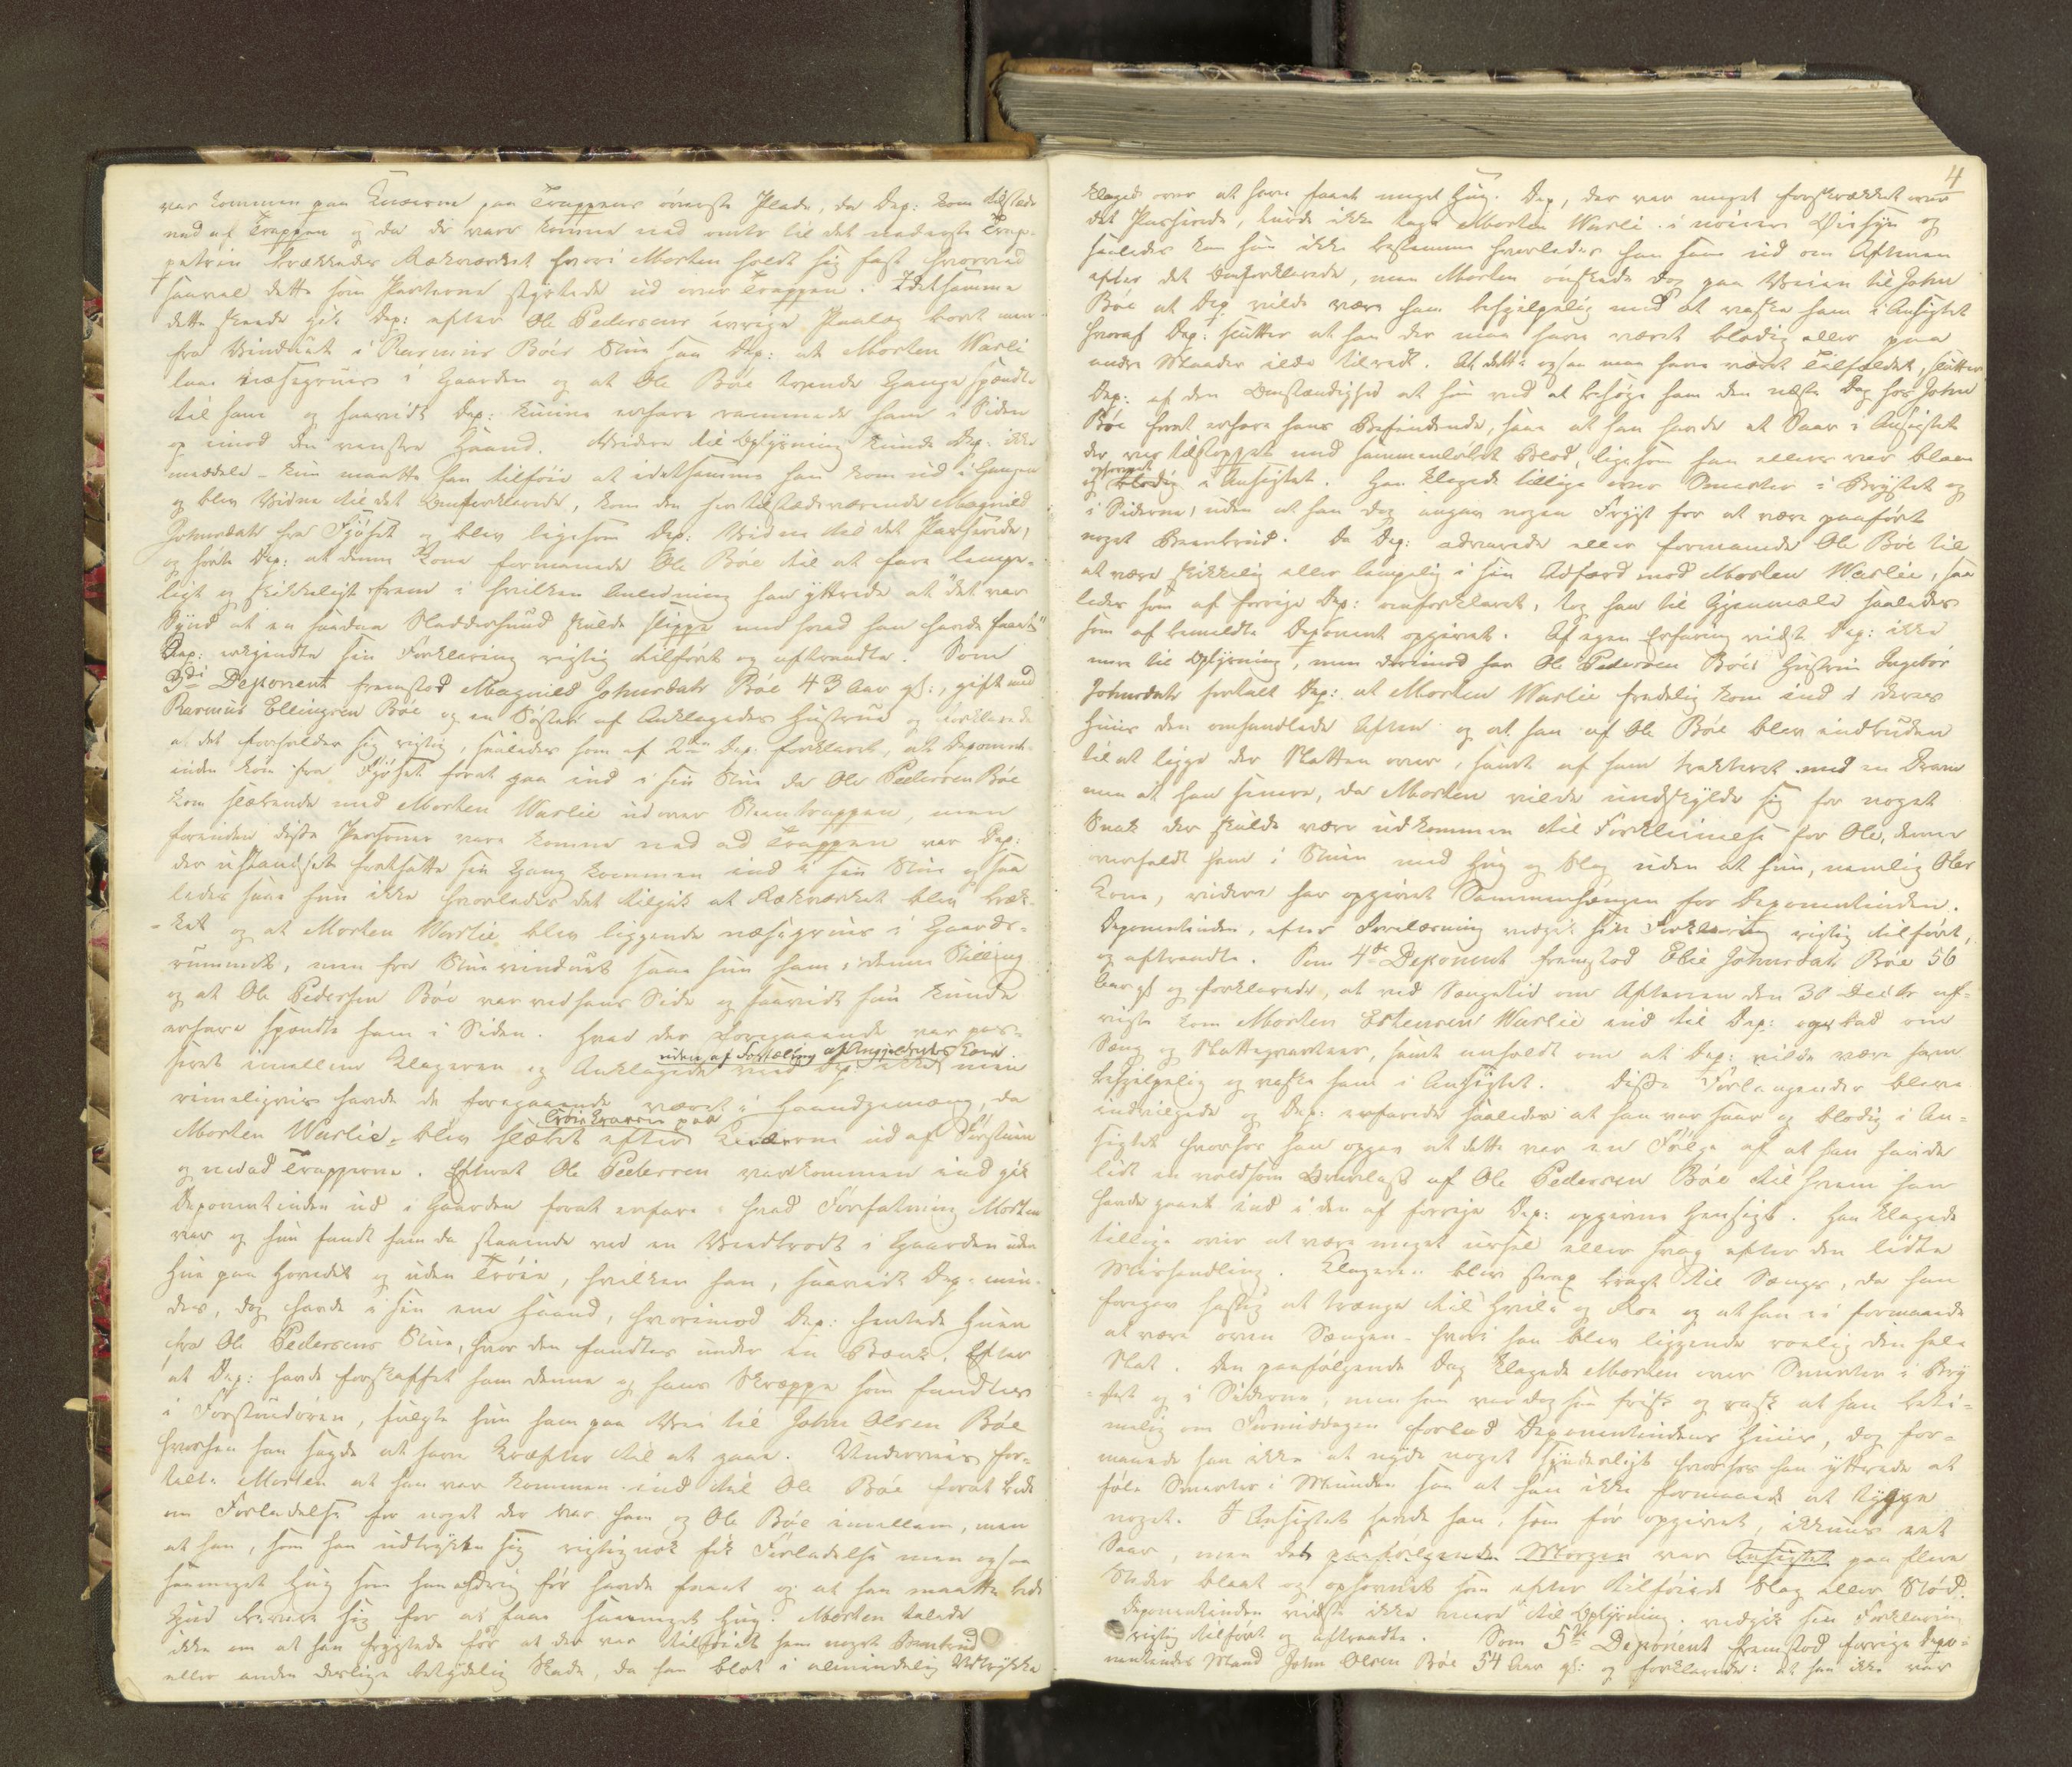 var kommen paa Knæerne paa Trappens øverste Plade, da Dep: kom tilstede
ned af Trappen og da de vare komne ned omtr til det nederste Trap-
petrin brækkedes Rækværket hvori Morten holdt sig fast hvorved
saavel dette som Parterne styrtede ud over Trappen. Idetsamme
dette skeede gik Dep: efter Ole Pedersens ivrige Paalæg bort men
fra Vinduet i Rasmus Böes Stue saa Dep: at Morten Warli
laae næsegruus i Gaarden og at Ole Böe tvende Gange spændte
til ham og saavidt Dep: kunne erfare rammede ham i Siden
op imod den venstre Haand. Videre til Oplysning kunde Dep: ikke
meddele - kun maatte han tilføie at idetsamme han kom ud i Gangen
og blev Vidne til det Omforklarede, kom den her tilstedeværende Magnild
Johnsdatr fra Fjöset og blev ligesom Dep: Vidne til det Passerede,
og hørte Dep: at denne Kone formanede Ole Böe til at fare lempe-
ligt og skikkeligt frem i hvilken Anledning han yttrede at "det var
Synd at en saadan Sladderhund skulde slippe med hvad han havde faaet"
Dep: vedgiendte sin Forklaring rigtig tilført og aftraadte. Som
3di Deponent fremstod Magnild Johnsdatr Böe 43 Aar gl:, gift med
Rasmus Ellingsen Böe og en Søster af Anklagedes Hustrue og forklarede
at det forholder sig rigtig, saaledes som af 2den Dep: forklaret, at Deponent-
inden kom fra Fjöset forat gaa ind i sin Stue da Ole Pedersen Böe
kom slæbende med Morten Warlie ud over Steentrappen, men
forinden disse Personer vare komne ned ad Trappen var Dep:
der ustandset fortsatte sin Gang kommen ind i sin Stue og saa
ledes saae hun ikke hvorledes det tilgik at Rækværket blev bræk-
-ket og at Morten Warlie blev liggende næsegruus i Gaards-
rummet, men fra Stuevinduet saae hun ham i denne Stilling
og at Ole Pedersen Böe var ved hans Side og saavidt hun kunde
erfare spændte ham i Siden. Hvad der foregaaende var pas-
uden af Fortælling af Angjeldendes Kone.
seret imellem Klageren og Anklagede veed Dep: ikke men
rimeligviis havde de foregaaende været i Haandgemæng, da
Trøiekraven paa
Morten Warlie - blev slæbet efter Knæerne ud af Forstuen
og nedad Trapperne. Efterat Ole Pedersen var kommen ind gik
Deponentinden ud i Gaarden forat erfare i hvad Forfatning Morten
var og hun fandt ham da staaende ved en Vedbrodt i Gaarden uden
Hue paa Hovedet og uden Trøie, hvilken han, saavidt Dep: min-
des, dog havde i sin ene Haand, hvorimod Dep: hentede Huen
fra Ole Pedersens Stue, hvor den fandtes under en Bænk. Efter
at Dep: havde forskaffet ham denne og hans Skræppe som fandtes
i Forstuedøren, fulgte hun ham paa Vei til John Olsen Böe
hvorhen han sagde at have Kræfter til at gaae. Underveis for-
talte Morten at han var kommen ind til Ole Böe forat bede
om Forladelse for noget der var ham og Ole Böe imellem, men
at han, som han udtrykte sig rigtignok fik Forladelse men ogsaa
saameget Hug som han aldrig før havde faaet og at han maatte bede
Gud bevare sig for at faae saameget Hug. Morten talede
ikke om at han frygtede for at der var tilføiet ham noget Beenbrud
eller anden deslige betydelig Skade, da han blot i almindelig Udtrykke
4
klagede over at have faaet meget Hug. Dep, der var meget forskrækket over
det Passerede, turde ikke tage Morten Warli i nøiere Øiesyn og
saaledes kan hun ikke bestemme hvorledes han saae ud om Aftenen
efter det Omforklarede, men Morten ønskede dog paa Veien til John
Böe at Dep vilde være ham behjelpelig med at vaske ham i Ansigtet
hvoraf Dep: slutter at han der maa have været blodig eller paa
andre Maader ilde tilredt. At dette ogsaa maa have været Tilfældet, slutter
Dep: af den Omstændighed at hun ved at besøge ham den næste Dag hos John
Böe forat erfare hans Befindende, saae at han havde et Saar i Ansigtet
der var tilstoppet med sammenløbet Blod, ligesom han ellers var blaae
ophovnet
og blodig i Ansigtet. Han klagede tillige over Smerter i Brystet og
i Siderne, uden at han dog angav nogen Frygt for at være paaført
noget Beenbrud. Da Dep: advarede eller formanede Ole Böe til
at være skikkelig eller lempelig i sin Adfærd mod Morten Warlie, saa
ledes som af forrige Dep: omforklaret, tog han til Gjenmæle saaledes
som af bemeldte Deponent opgivet. Af egen Erfaring vidste Dep: ikke
mere til Oplysning, men derimod har Ole Pedersen Böes Hustrue Ingebor
Johnsdatr fortalt Dep: at Morten Warlie fredelig kom ind i deres
Huus den omhandlede Aften og at han af Ole Böe blev indbuden
til at ligge der Natten over, samt af ham trakteret med en Dram
men at han senere, da Morten vilde undskylde sig for noget
Snak der skulde være udkommen til Forkleinelse for Ole, denne
overfaldt ham i Stuen med Hug og Slag uden at hun, nemlig Oles
Kone, videre har opgivet Sammenhængen for Deponentinden.
Deponentinden, efter Oplæsning vedgik sin Forklaring rigtig tilført,
og aftraadte. Som 4de Deponent fremstod Elie Johnsdatr Böe 56
Aar gl og forklarede, at ved Sengetid om Aftenen den 30 Decbr af-
vigte kom Morten Estensen Warlie ind til Dep: og bad om
Seng og Natteqvarteer, samt anholdt om at Dep: vilde være ham
behjelpelig og vaske ham i Ansigtet. Disse Forlangender bleve
indvilgede og Dep: erfarede saaledes at han var saar og blodig i An-
sigtet hvorhos han opgav at dette var en Følge af at han havde
lidt en voldsom Overlast af Ole Pedersen Böe til hvem han
havde gaaet ind i den af forrige Dep: opgivne Hensigt. Han klagede
tillige over at være meget ussel eller svag efter den lidte
Mishandling. Klageren blev strax bragt til Sengs, da han
foregav hastig at trænge til Hvile og Roe og at han ei formaaede
at være oven Sengen - hvori han blev liggende roelig den hele
Nat. Den paafølgende Dag klagede Morten over Smerter i Bry
-stet og i Siderne, men han var dog saa frisk og rask at han beti-
melig om Formiddagen forlod Deponentindens Huus, dog for-
maaede han ikke at nyde noget synderligt hvorhos han yttrede at
føle Smerter i Munden saa at han ikke formaaede at tygge
noget. I Ansigtet havde han, som før opgivet, ikkuns eet
Saar, men den paafølgende Morgen var Ansigtet paa flere
Steder blaat og ophovnet som efter tilføiede Slag eller Stød.
Deponentinden vidste ikke mere til Oplysning, vedgik sin Forklaring
rigtig tilført og aftraadte. Som 5te Deponent fremstod forrige Depo-
nentindes Mand John Olsen Böe 54 Aar gl: og forklarede: at han ikke var